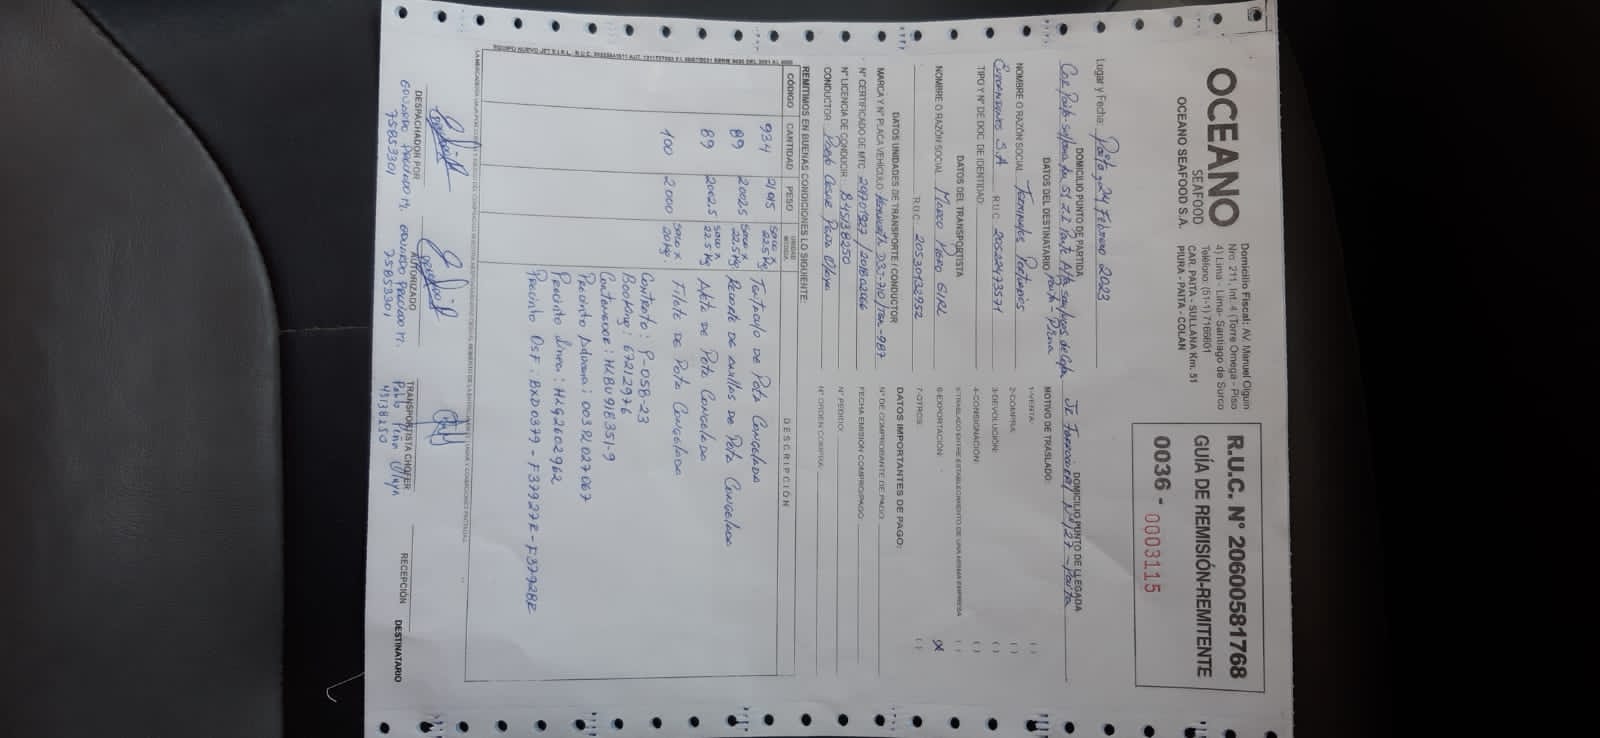 OCEANO
SEAFOOD
OCEANO SEAFOOD S.A.
Domicilio Fiscal: AV. Manuel Olguin
Nro. 211, Int. 4 (Torre Omega - Piso
4) Lima - Lima - Santiago de Surco
Teléfono: (51-1) 7166601
CAR. PAITA - SULLANA Km. 51
PIURA - PAITA - COLÁN
R.U.C. N° 20600581768
GUÍA DE REMISIÓN-REMITENTE
0036 - 0003115
Lugar y Fecha: Paita, 24 Febrero 2023
DOMICILIO PUNTO DE PARTIDA
DOMICILIO PUNTO DE LLEGADA
N° 127 - Paita
DATOS DEL DESTINATARIO Paita - Piura
NOMBRE O RAZÓN SOCIAL Terminales Portuarios
S.A R.U.C. 20522473571
TIPO Y N° DE DOC. DE IDENTIDAD:
DATOS DEL TRANSPORTISTA
NOMBRE O RAZÓN SOCIAL Marco Piero EIRL
R.U.C. 20530132952
DATOS UNIDADES DE TRANSPORTE / CONDUCTOR
MARCA Y N° PLACA VEHÍCULO
N° CERTIFICADO DE MTC
N° LICENCIA DE CONDUCIR B45138250
CONDUCTOR
MOTIVO DE TRASLADO:
1-VENTA: ( )
2-COMPRA: ( )
3-DEVOLUCIÓN: ( )
4-CONSIGNACIÓN: ( )
5-TRASLADO ENTRE ESTABLECIMIENTO DE UNA MISMA EMPRESA ( )
6-EXPORTACIÓN: X
7-OTROS: ( )
DATOS IMPORTANTES DE PAGO:
N° DE COMPROBANTE DE PAGO:
FECHA EMISIÓN COMPROB/PAGO:
N° PEDIDO:
N° ORDEN COMPRA:
REMITIMOS EN BUENAS CONDICIONES LO SIGUIENTE:
CÓDIGO CANTIDAD PESO UNIDAD MEDIDA DESCRIPCIÓN
934 21015 saco x 22.5 kg Tentáculo de Pota Congelada
89 2002.5 saco x 22.5 kg Recorte de anillas de Pota Congelada
89 2002.5 saco x 22.5 kg Aleta de Pota Congelada
100 2000 saco x 20 kg. Filete de Pota Congelada
Contrato: P-058-23
Booking: 67212976
Contenedor: HLBU918351-9
Precinto Aduana: 0039202067
Precinto Linea: HLG2602962
Precinto OSF: BXD0379 - F37927R - F37928R
DESPACHADOR POR
Eduardo Preciado M.
75853301
AUTORIZADO
Eduardo Preciado M.
75853301
TRANSPORTISTA CHOFER
Pablo Peña
45138250
RECEPCIÓN
DESTINATARIO